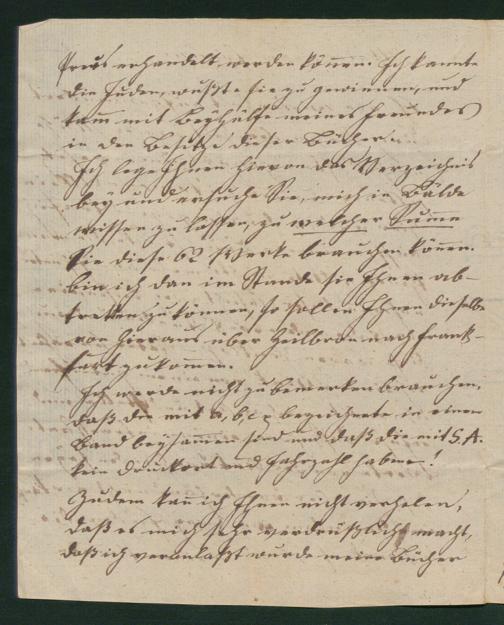 Preis erhandelt werden können. Ich kannte
die Juden, wußte sie zu gewinnen, und
kam mit Beyhülfe meines Freundes
in den Besitze dieser Bücher.
Ich lege Ihnen hievon das Verzeichnis
bey und ersuche Sie, mich in Bälde
wissen zu lassen, zu welcher Summe
Sie diese 62 Werke brauchen können.
bin ich dan im Stande sie Ihnen ab-
tretten zu können, so sollen Ihnen dieselbe
von hieraus über Heilbron nach Frank-
furt zukommen.
Ich werde nicht zu bemerken brauchen,
daß die mit a, b, c, bezeichnete in einem
Band beysammen sind und daß die mit S. A.
kein Druckort und Jahrzahl haben!
Zudem kan ich Ihnen nicht verhelen,
daß es mich sehr verdrüßlich macht,
daß ich veranlaßt wurde meine Bücher